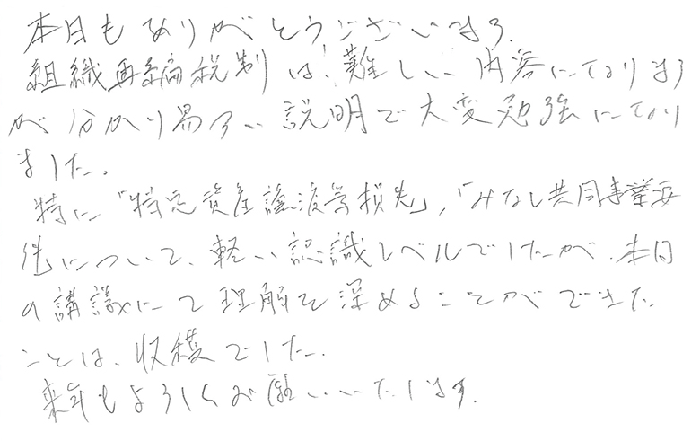 本日もありがとうございます。
組織再編税制は、難しい内容になります
が分かり易すい説明で大変勉強になり
ました。
特に「特定資産譲渡等損失」,「みなし共同事業要
件について、軽い認識レベルでしたが、本日
の講義にて理解を深めることができた
ことは、収穫でした。
来年もよろしくお願いいたします。